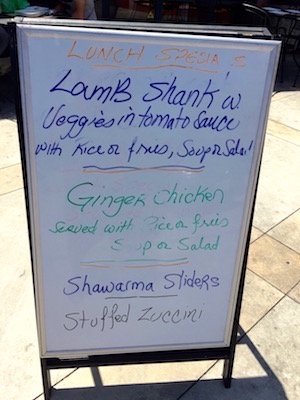 LUNCH SPECIA S
LamB Shank w
Veggies in tomato Sauce
with Rice or fries, Soup or Salad
Ginger Chicken
Served with Rice or fries
Soup or Salad
Shawarma Sliders
Stuffed Zuccini